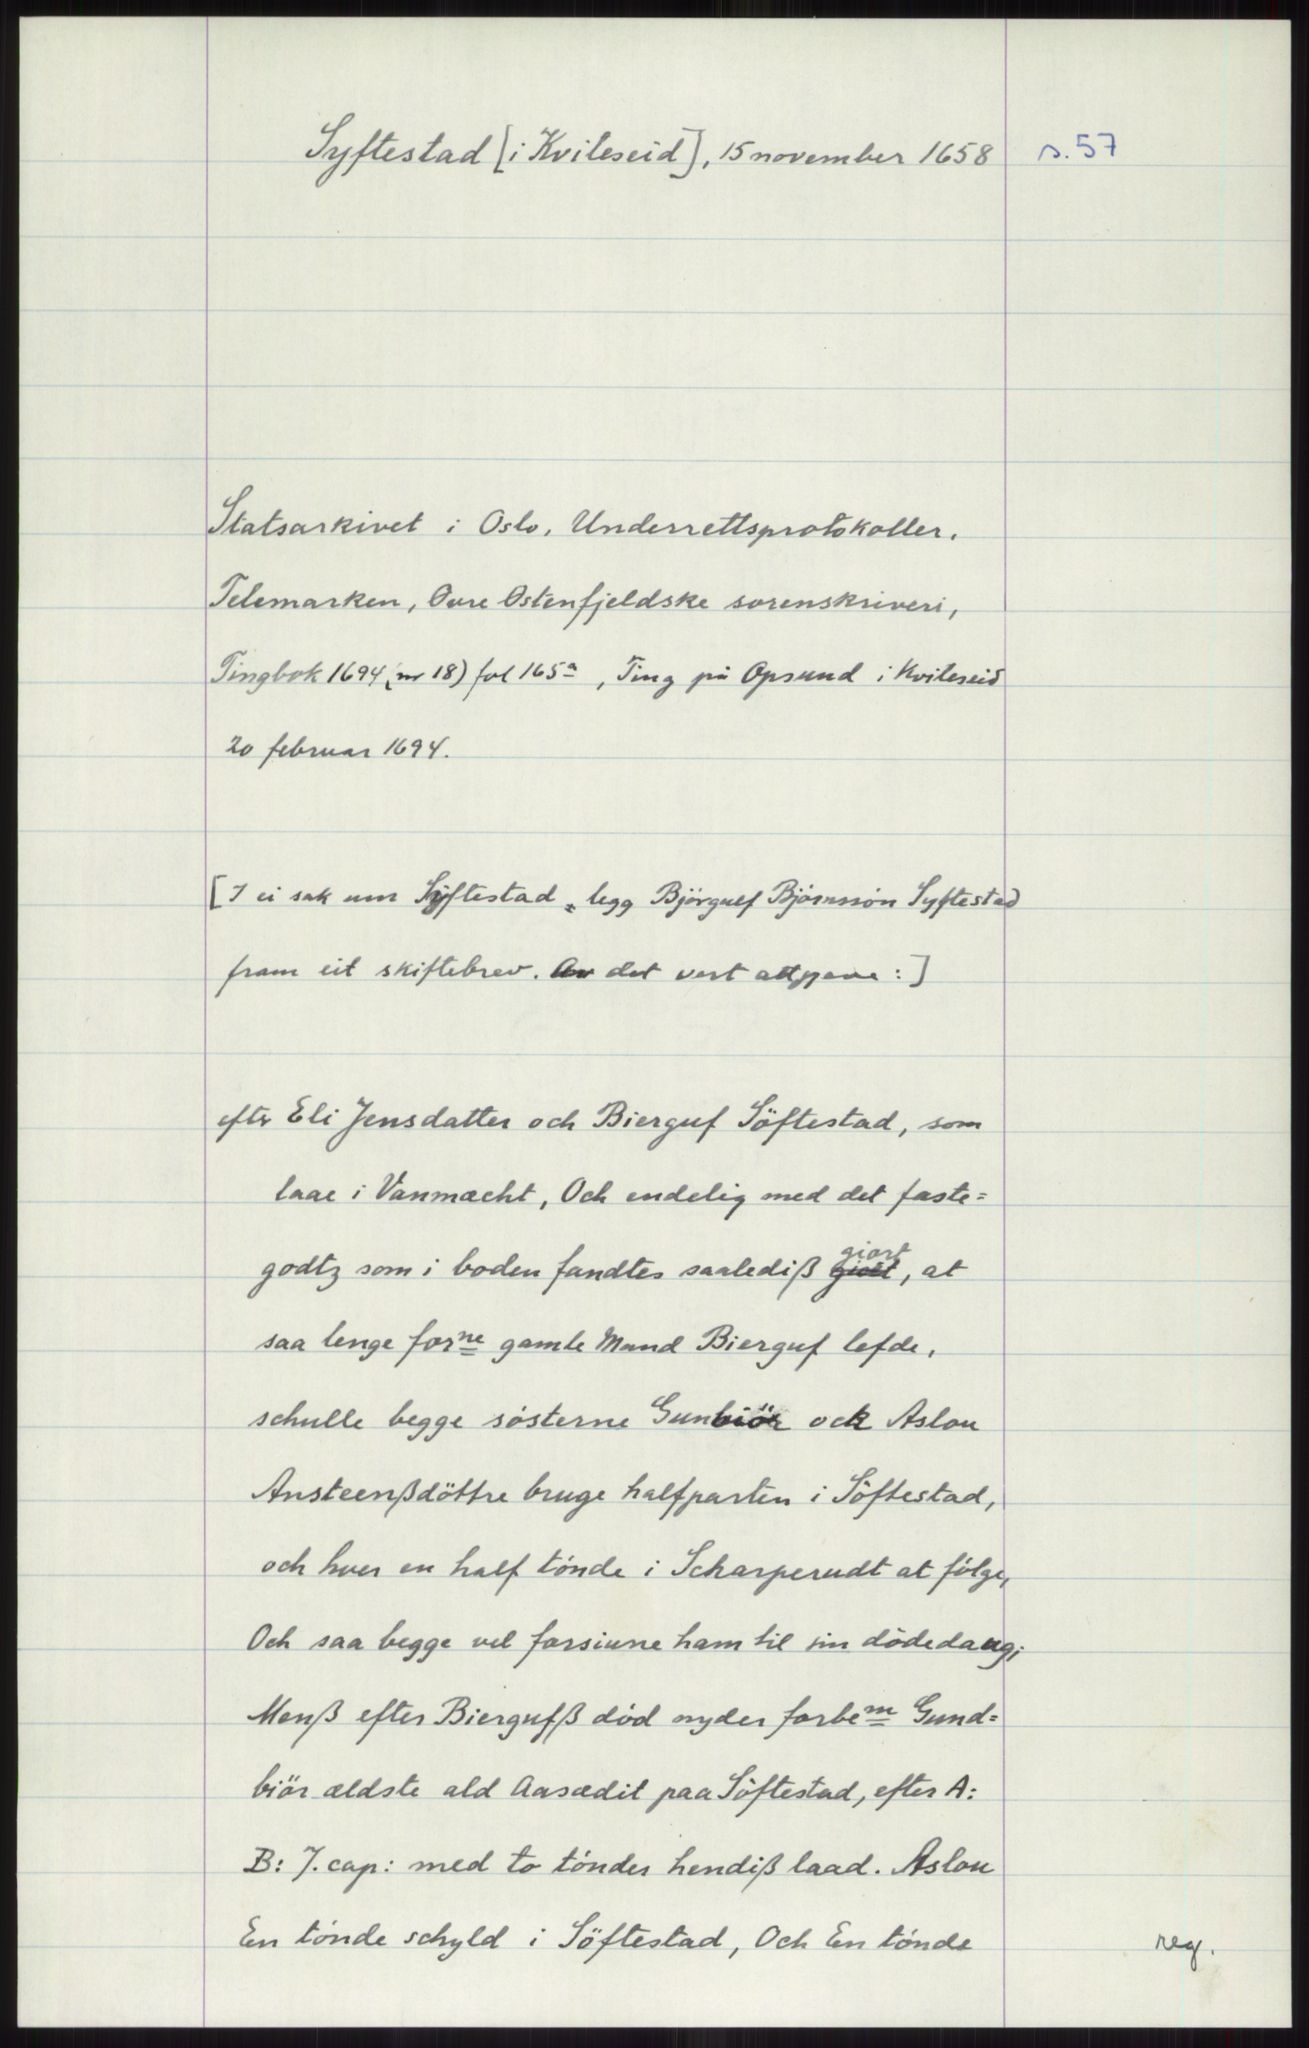 Syftestad [i Kviteseid], 15 november 1658
s. 57
Statsarkivet i Oslo, Underrettsprotokoller,
Telemarken, Øvre Østenfjeldske sorenskriveri,
Tingbok 1694 (nr 18) fol 165a, Ting på Opsund i Kviteseid
20 februar 1694.
[I ei sak um Syftestad, legg Bjørgulf Bjørnsson Syftestad
fram eit skiftebrev. Av det vert attgjeve:]
eftr Eli Jensdatter och Bierguf Söftestad, som
laae i Vanmacht, Och endelig med det faste-
godtz som i boden fandtes saalediß giort, at
saa lenge forne gamle Mand Bierguf lefde,
schulle begge søsterne Gunbiör ock Aslou
Ansteenßdöttre bruge halfparten i Söftestad,
och huer en half tønde i Scharperudt at følge,
Och saa begge vel forsiune ham til sin dødedaug;
Menß efter Biergufß død nyder forbem Gund-
biör ældste ald Aasædit paa Söftestad, efter A:
B: 7. cap: med to tønder hendiß laad. Aslou
En tønde schyld i Söftestad, Och En tønde
reg.